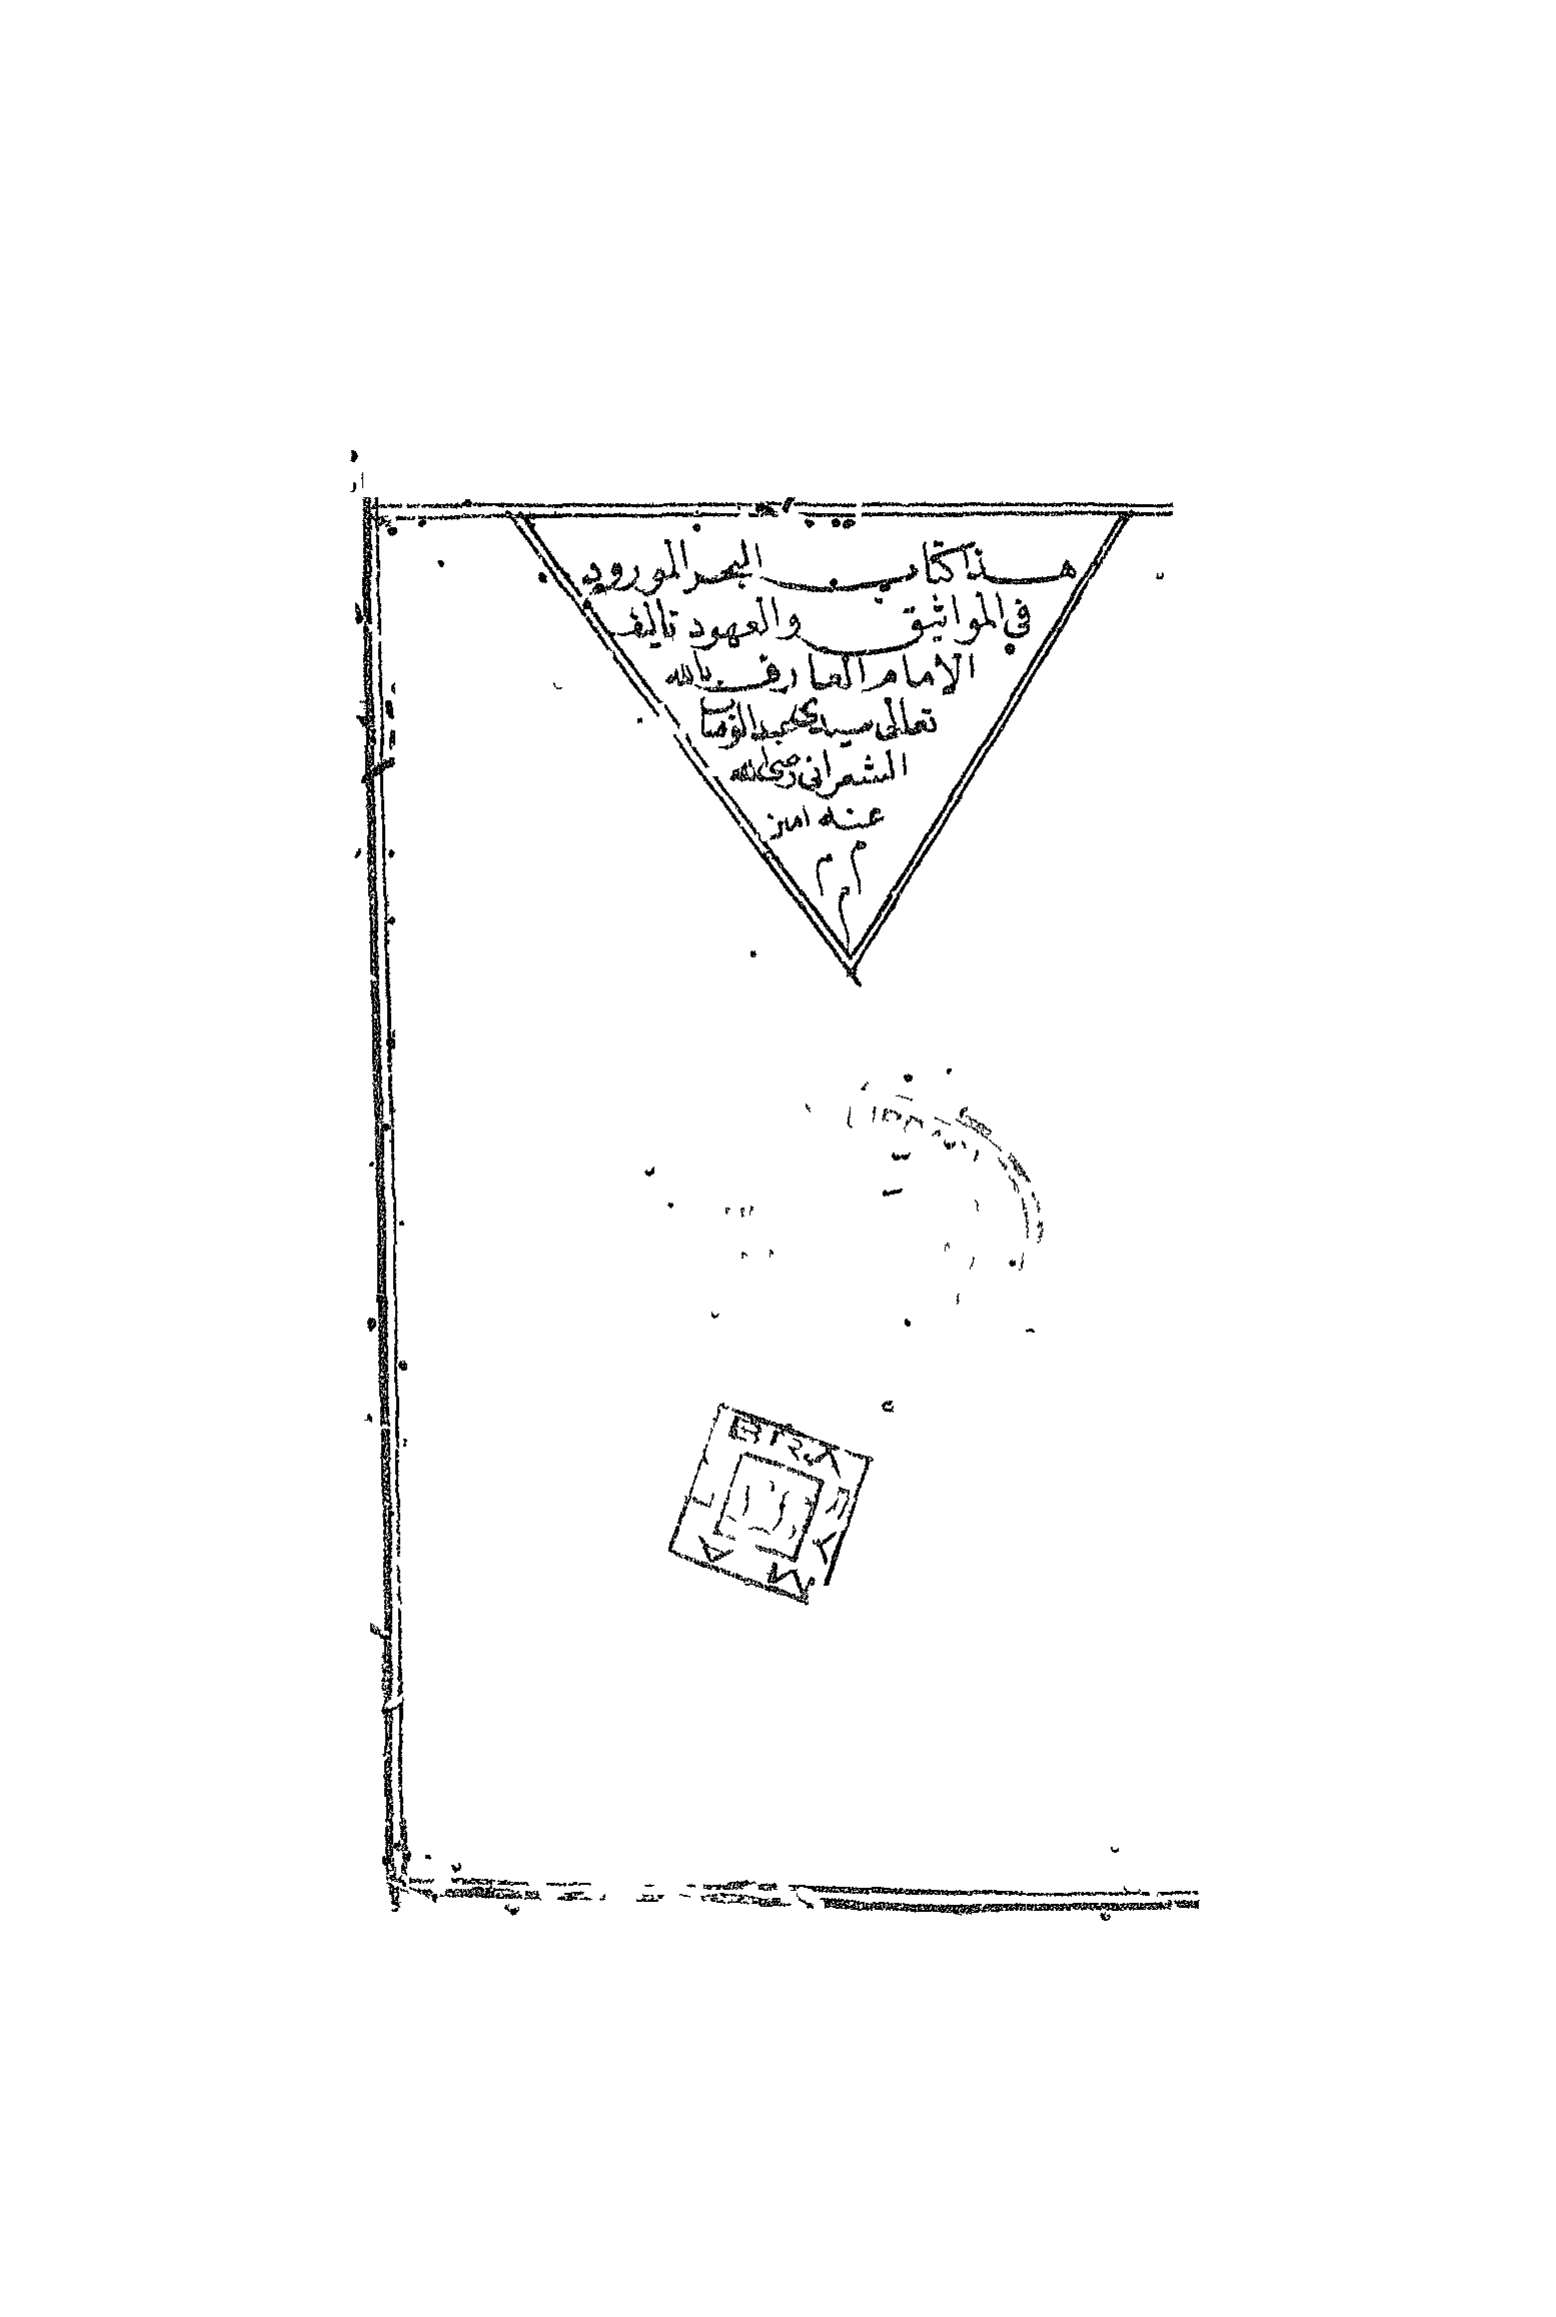 هذا كتاب البحر المورود
في المواثيق والعهود تاليف
الامام العارف بالله
تعالى سيدي عبد الوهاب
الشعرانى رضى الله
عنه امين
م م
م